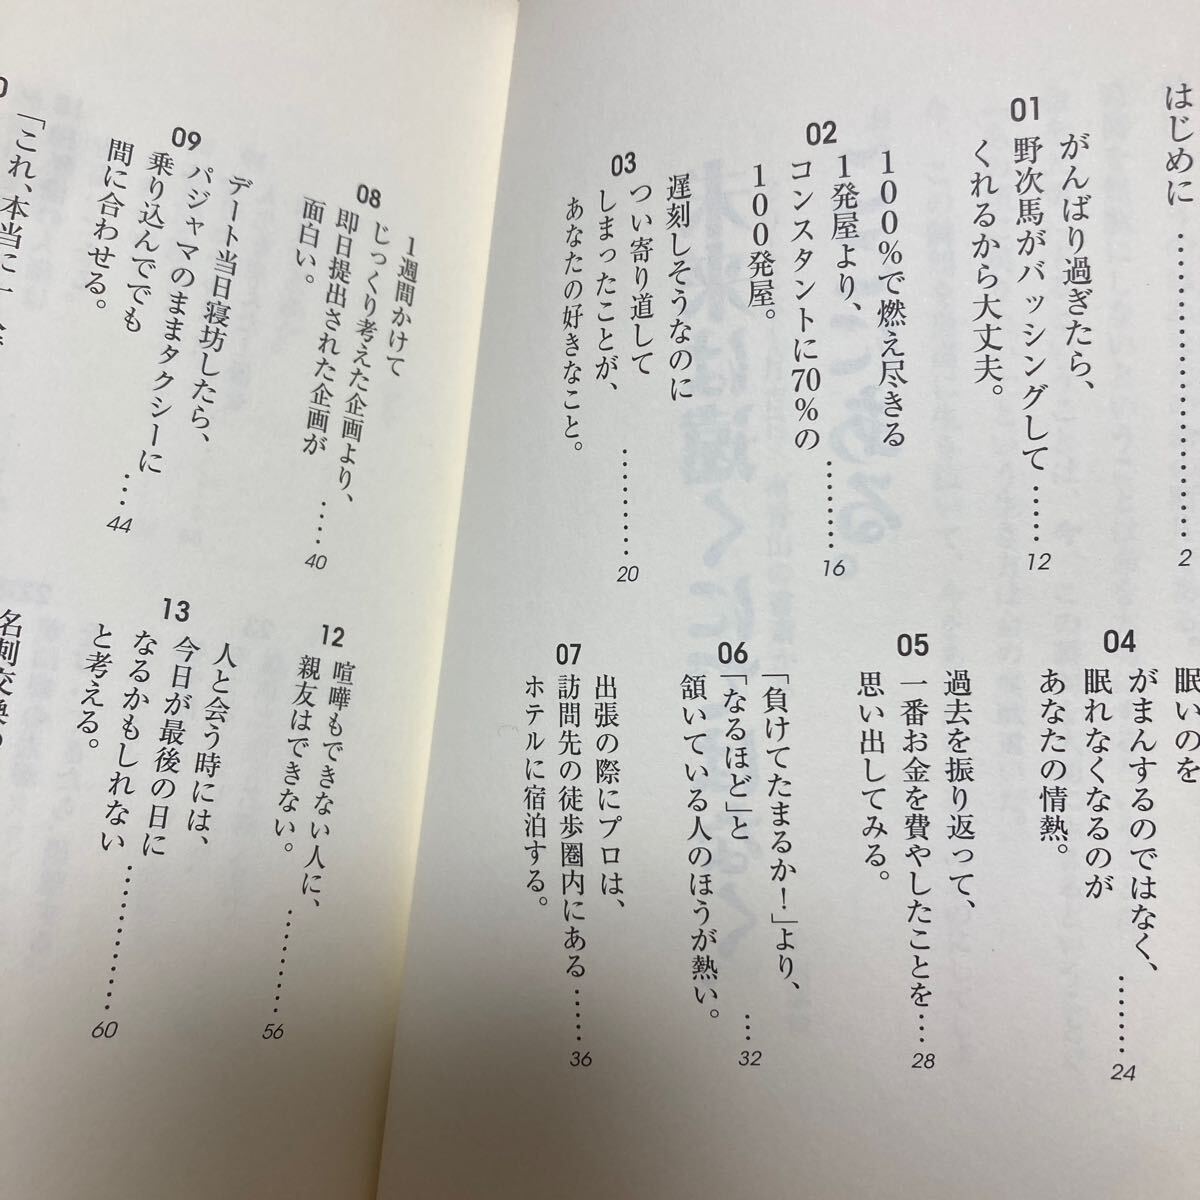 はじめに……………2
01
がんばり過ぎたら、
野次馬がバッシングして
くれるから大丈夫。……12
02
100%で燃え尽きる
1発屋より、
コンスタントに70%の
100発屋。………16
03
遅刻しそうなのに
つい寄り道して
しまったことが、
あなたの好きなこと。………20
04
眠いのを
がまんするのではなく、
眠れなくなるのが
あなたの情熱。………24
05
過去を振り返って、
一番お金を費やしたことを
思い出してみる。…28
06
「負けてたまるか!」より、
「なるほど」と
頷いている人のほうが熱い。…32
07
出張の際にプロは、
訪問先の徒歩圏内にある
ホテルに宿泊する。……36
08
1週間かけて
じっくり考えた企画より、
即日提出された企画が
面白い。……40
09
デート当日寝坊したら、
パジャマのままタクシーに
乗り込んででも
間に合わせる。…44
「これ、本当に
12
喧嘩もできない人に、
親友はできない。………56
13
人と会う時には、
今日が最後の日に
なるかもしれない
と考える。…………60
名刺交換